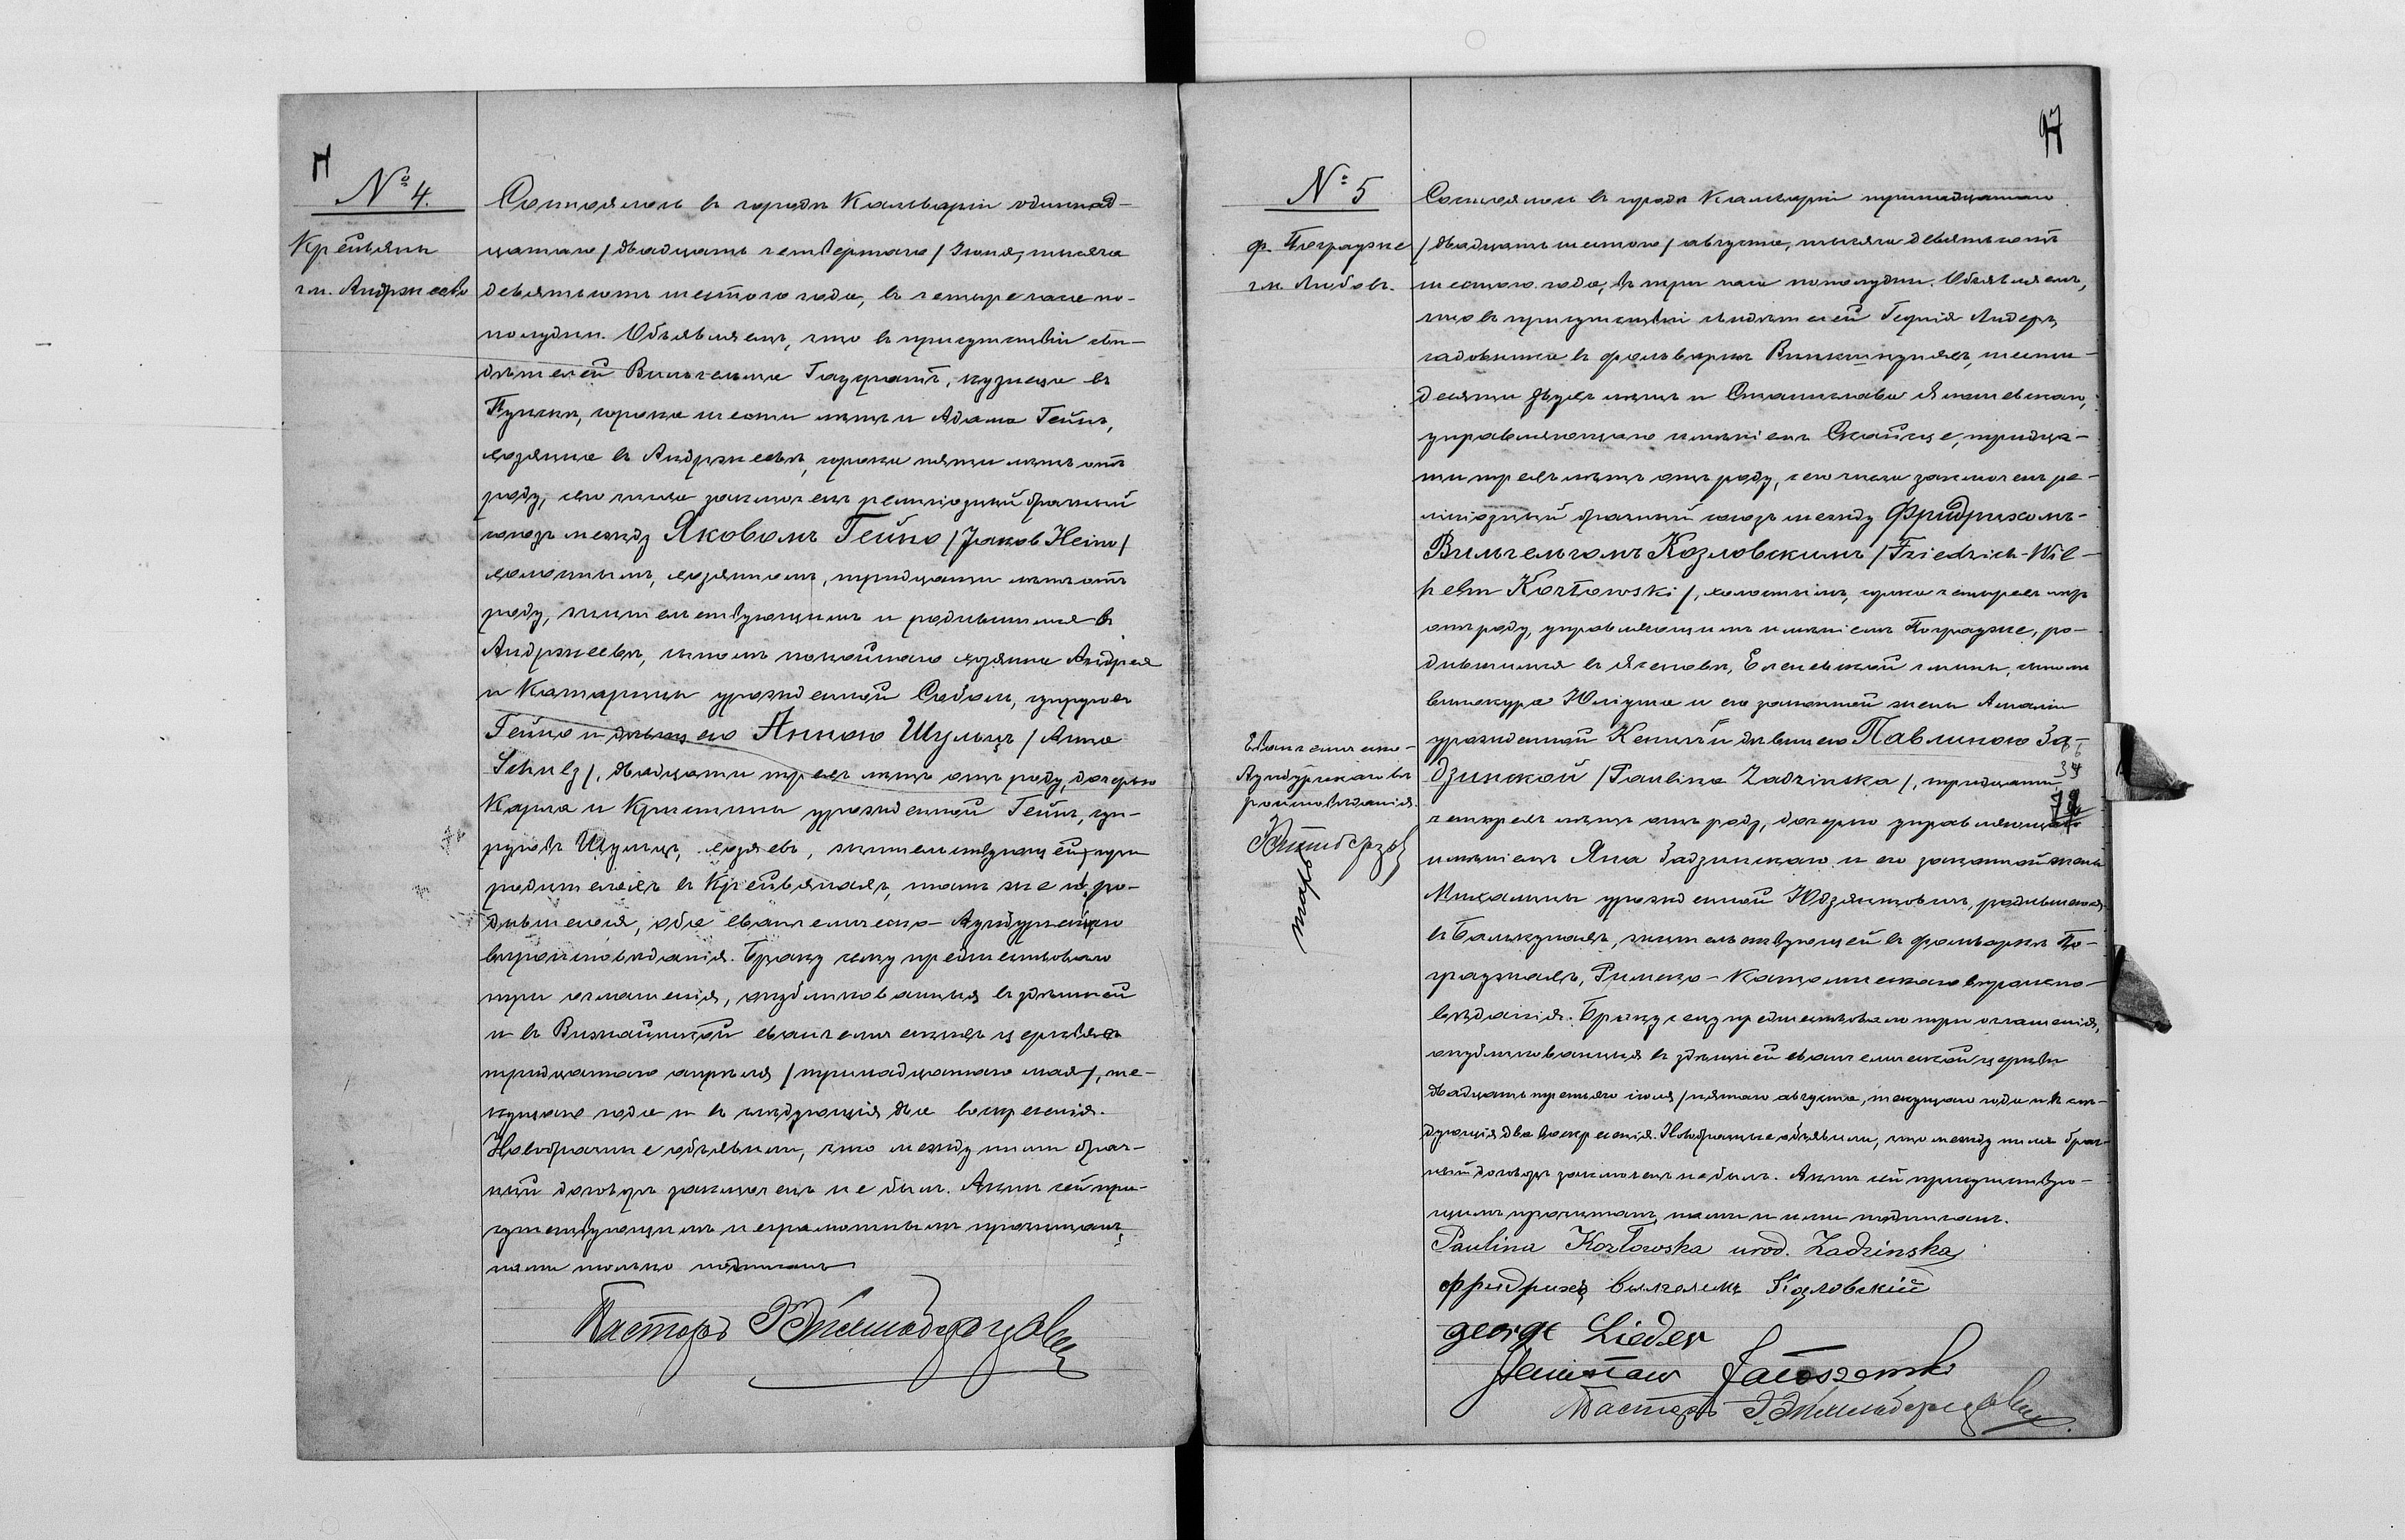 № 4.
Крейвяны
гм. Анджеево
Состоялось въ городѣ Кальваріи одиннад-
цатаго /двадцать четвертаго/ Іюня, тысяча
девятьсотъ шестого года, въ четыре часа по-
полудни. Объявляемъ, что въ присутствіи сви-
дѣтелей Вильгельма, кузнеца въ
сорока шести лѣтъ и Адама Гейнъ,
хозяина въ Анджеевѣ, сорока пяти лѣтъ отъ
роду, сего числа заключенъ религіозный брачный
союзъ между Яковомъ Гейно /Jakob Heino/
холостымъ, хозяиномъ, тридцати лѣтъ отъ
роду, жительствующимъ и родившимся въ
Анджеевѣ, сыномъ покойнаго хозяина Андрея
и Катарины урожденной, супруговъ
Гейно и дѣвицею Анною Шульцъ /Anna
Schulz/, двадцати трехъ лѣтъ отъ роду, дочерью
Карла и Кристины урожденной Гейнъ, суп-
руговъ Шульцъ, хозяевъ, жительствующей при
родителяхъ въ Крейвянахъ, тамъ же и ро-
дившеюся, оба евангелическо-Аугсбургскаго
вѣроисповѣданія. Браку сему предшествовало
три оглашенія, опубликованныя въ здѣшней
и въ Вижайнской евангелическихъ церквяхъ
тридцатаго апрѣля /тринадцатаго мая/, те-
кущаго года и въ слѣдующія два воскресенія.
Новобрачные объявили, что между ними брач-
ный договоръ заключенъ не былъ. Актъ сей при-
сутствующимъ неграмотнымъ прочитанъ,
нами только подписанъ
Пасторъ
97
№ 5
ф. Пограуже
гм. Любовъ.
Состоялось въ городѣ Кальваріи тринадцатаго
/двадцать шестого/ августа, тысяча девятьсотъ
шестого года, въ три часа пополудни. Объявляемъ,
что въ присутствіи свидѣтелей Лидеръ,
садовника въ фольваркѣ, шести-
десяти двухъ лѣтъ и Станислава,
управляющаго имѣніемъ, тридца-
ти трехъ лѣтъ отъ роду, сего числа заключенъ ре-
лигіозный брачный союзъ между Фридрихомъ-
Вильгельмомъ Козловскимъ /Friedrich-Wil-
helm Kozłowski/, холостымъ, сорока четырехъ лѣтъ
отъ роду, управляющимъ имѣніемъ Пограуже, ро-
дившимся въ гмины, сыномъ
винокура Юліуша и его законной жены Амаліи
урожденной и дѣвицею Павлиною За-
дзинской /Paulina Zadzinska/, тридцати
четырехъ лѣтъ отъ роду, дочерью управляющаго
имѣніемъ Яна Задзинскаго и его законной жены
урожденной, родившеюся
въ, жительствующей въ фольваркѣ По-
граужахъ, Римско-Католическаго вѣроиспо-
вѣданія. Браку сему предшествовало три оглашенія,
опубликованныя въ здѣшней евангелической церкви
двадцать третьяго іюля /пятаго августа, текущаго года и въ слѣ-
дующія два воскресенія. Новобрачные объявили, что между ними брач-
ный договоръ заключенъ не былъ. Актъ сей присутствую-
щимъ прочитанъ, нами и ими подписанъ.
Евангелическо-
Аугсбургскаго вѣ-
роисповѣданія.
Пасторъ
Paulina Kozłowska urod. Zadzinska
Фридрихъ Вильгельмъ Козловскій
George Lieder
Пасторъ